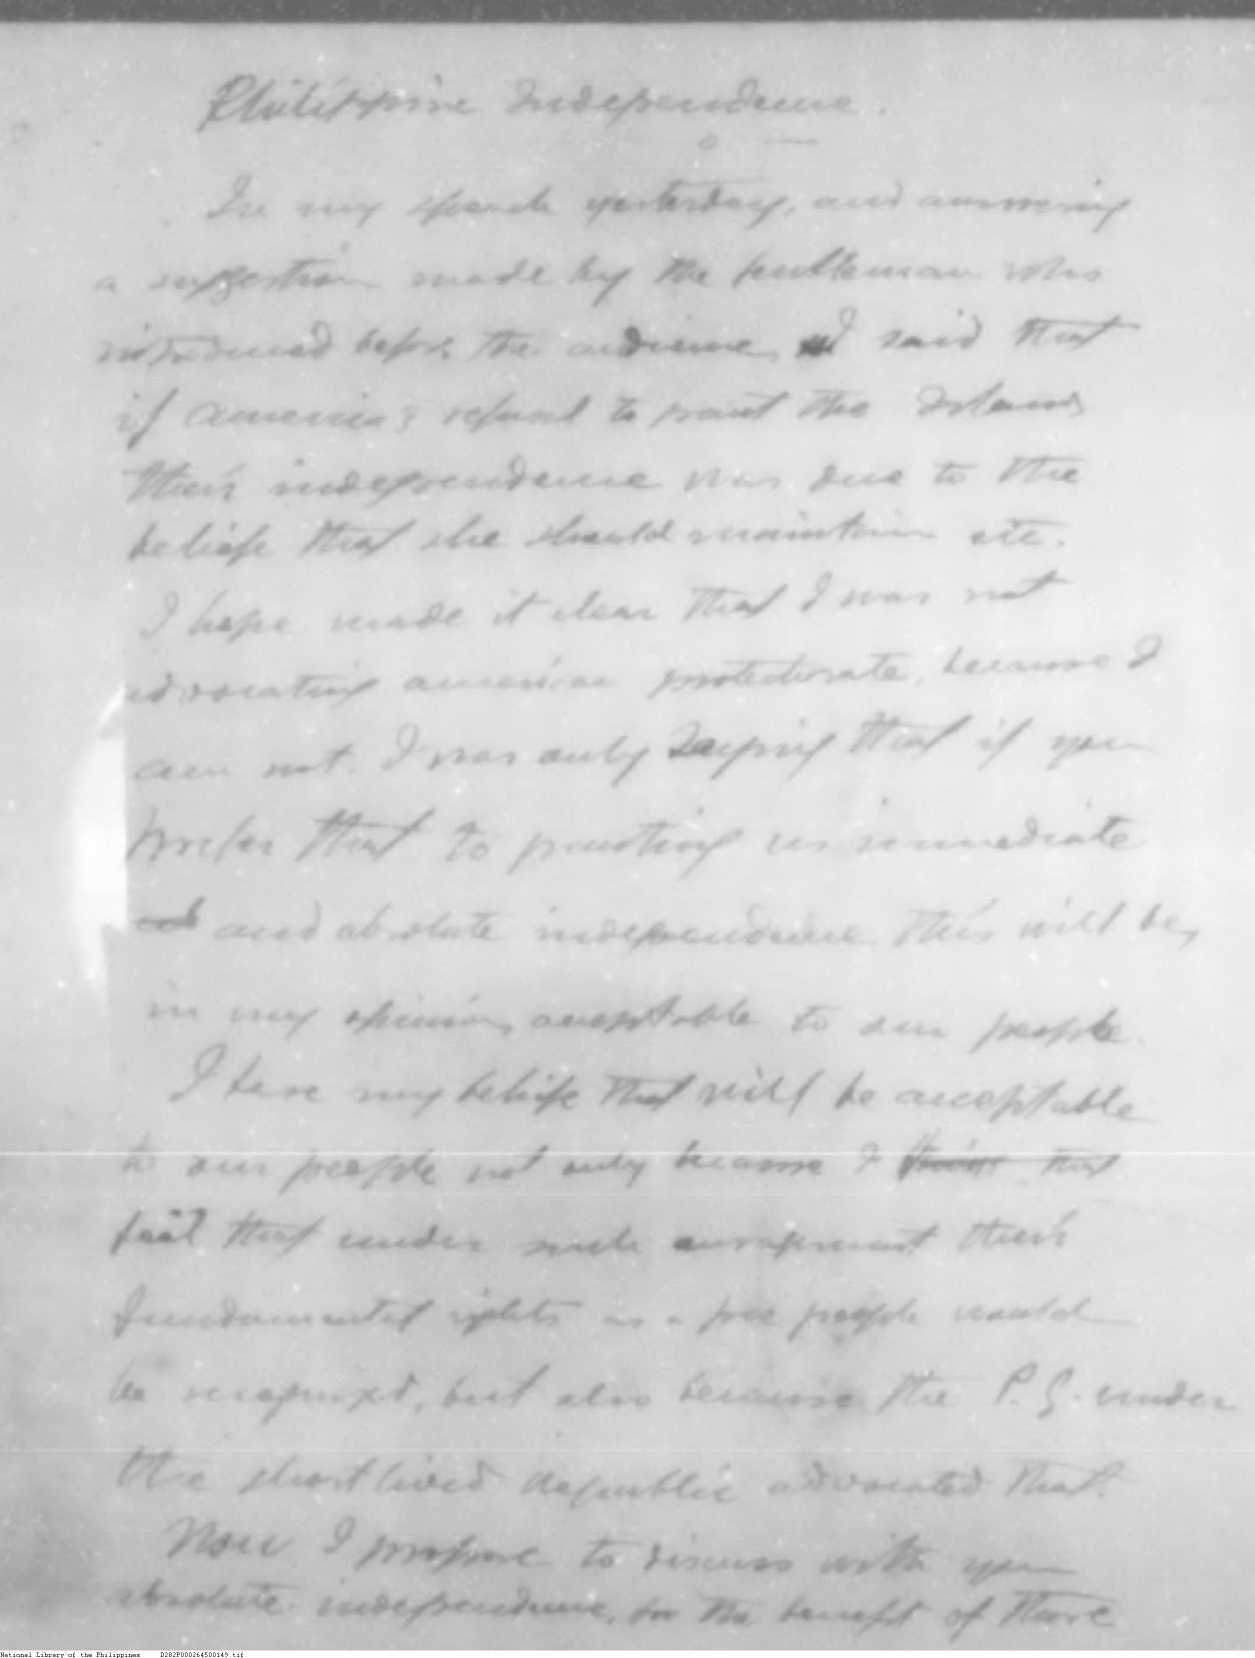 Philippine Independence.
In my speech yesterday, and answering
a suggestion made by the gentleman who
introduced before the audience, I said that
if America's refusal to grant the Islands
their independence was due to the
beliefe that she should maintain etc.
I hope made it clear that I was not
advocating american protectorate, because I
am not. I was only saying that if you
prefer that to granting us immediate
and absolute independence this will be,
in my opinion, acceptable to our people.
I base my beliefe that will be acceptable
to our people not only because I that
feel that under such arrangement their
fundamental rights as a free people would
be recognized, but also because the P. G. under
the shortlived Republic advocated that.
Now I propose to discuss with you
absolute independence, for the benefit of those
National Library of the Philippines D282P000264500149.tif